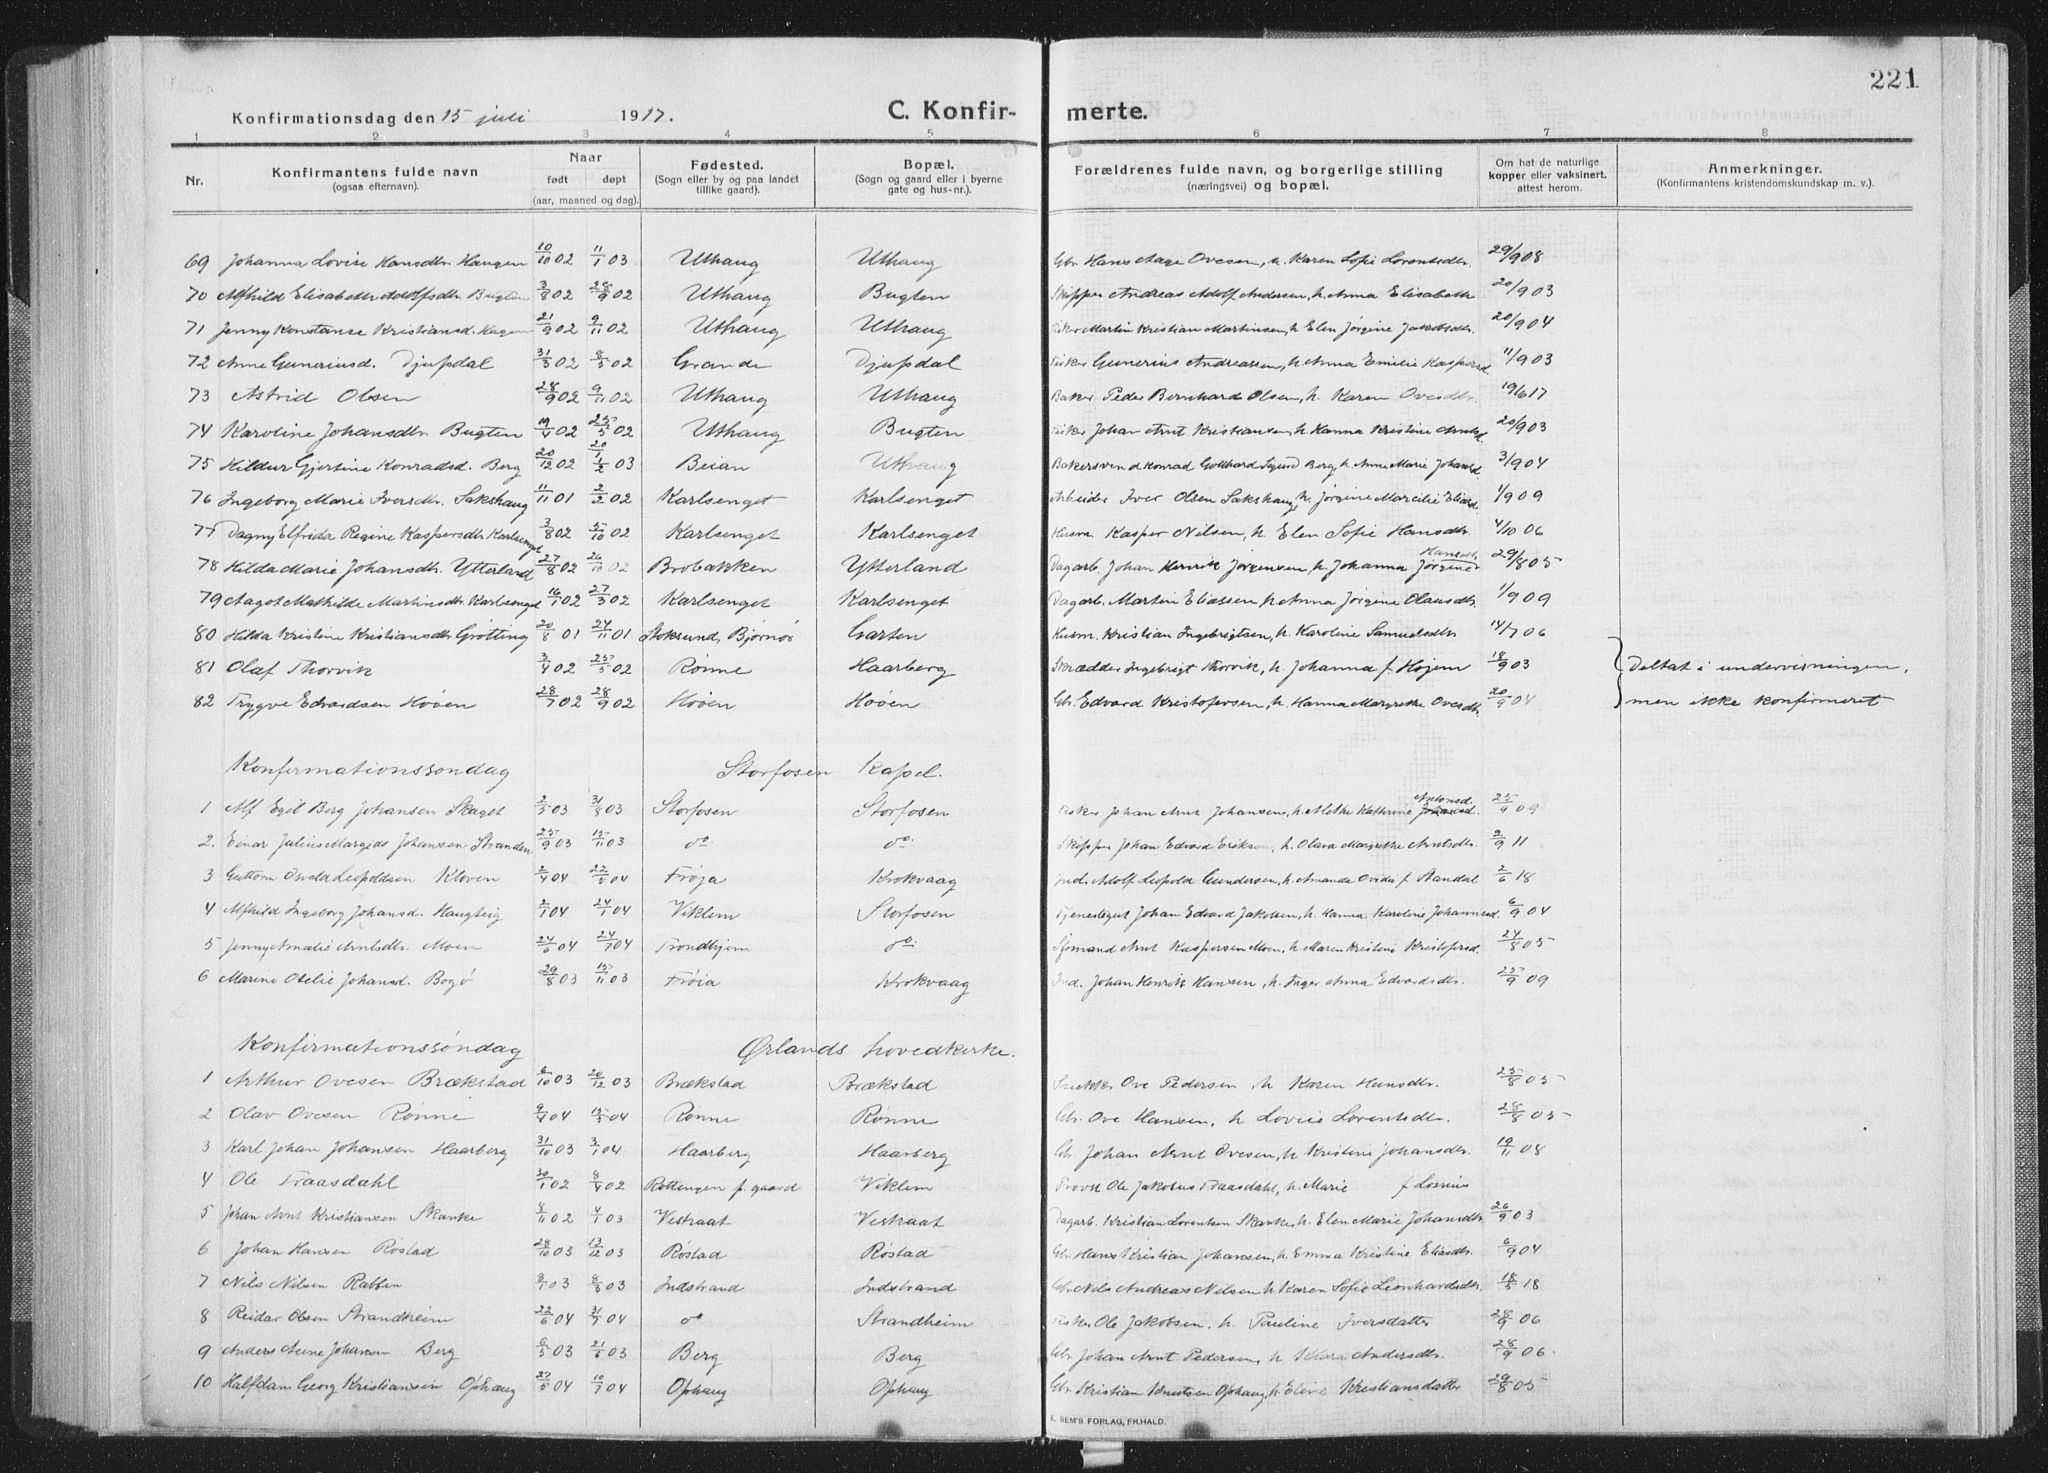 221
Konfirmationsdag den 15 juli 1917. C. Konfir- merte.
1 2 3 4 5 6 7 8
Nr. Konfirmantens fulde navn (ogsaa efternavn). Naar født døpt (aar, maaned og dag). Fødested. (Sogn eller by og paa landet tillike gaard). Bopæl. (Sogn og gaard eller i byerne gate og hus-nr.). Forældrenes fulde navn, og borgerlige stilling (næringsvei) og bopæl. Om hat de naturlige kopper eller vaksinert, attest herom. Anmerkninger. (Konfirmantens kristendomskundskap m. v.).
69 Johanna Lovise Hansdtr. Haugen 10/10 02 11/1 03 Uthaug Uthaug Gbr. Hans Aage Ovesen, h. Karen Sofie Lorentsdtr. 29/9 08
70 Alfhild Elisabeth Adolfsdtr. Bugten 3/8 02 28/9 02 Uthaug Bugten Skipper Andreas Adolf Andersen, h. Anna Elisabeth 20/9 03
71 Jenny Konstanse Kristiansd. Hagen 21/9 02 9/11 02 Uthaug Uthaug Fisker Martin Kristian Martinsen, h. Elen Jørgine Jakobsdtr. 20/9 04
72 Anne Gunneriusd. Djupdal 31/3 02 8/5 02 Grande Djupdal Fisker Gunerius Andreassen, h. Anna Emilie Kaspersd. 11/9 03
73 Astrid Olsen 28/9 02 9/11 02 Uthaug Uthaug Baker Peder Bernhard Olsen, h. Karen Ovesdtr. 19/6 17
74 Karoline Johansdtr. Bugten 19/4 02 25/5 02 Uthaug Bugten Fisker Johan Arnt Kristiansen, h. Hanna Kristine Arntsd. 20/9 03
75 Hildur Gjertine Konradsd. Berg 20/12 02 1/2 03 Beian Uthaug Bakersvend Konrad Gotthard Sigurd Berg, h. Anne Marie Johansd. 3/9 04
76 Ingeborg Marie Iversdtr. Sakshaug 11/11 01 2/2 02 Karlsenget Karlsenget Arbeider Iver Olsen Sakshaug, h. Jørgine Marcelie Eliasd. 1/9 09
77 Dagny Elfrida Regine Kaspersdtr. Karlsenget 3/8 02 5/10 02 Karlsenget Karlsenget Husm. Kasper Nilsen, h. Elen Sofie Hansdtr. 4/10 06
78 Hilda Marie Johansdtr. Ytterland 27/8 02 26/10 02 Brobakken Ytterland Dagarb. Johan Henrik Jørgensen, h. Johanna Jørgine Hansdtr. 29/8 05
79 Aagot Mathilde Martinsdtr. Karlsenget 16/1 02 27/3 02 Karlsenget Karlsenget Dagarb. Martin Eliassen, h. Anna Jørgine Olausdtr. 1/9 09
80 Hilda Kristine Kristiansdtr. Grøtting 20/8 01 24/11 01 Stoksund, Bjørnør Garten Husm. Kristian Ingebrigtsen, h. Karoline Samuelsdtr. 14/7 06
81 Olaf Thorvik 3/4 02 25/5 02 Rønne Haarberg Skrædder Ingebrigt Thorvik, h. Johanna f. Hojem 18/9 03 } Deltat i undervisningen,
82 Trygve Edvardsen Høøen 28/7 02 28/9 02 Høøen Høøen Gbr. Edvard Kristofersen, h. Hanna Margrethe Ovesdtr. 20/9 04 men ikke konfirmeret
Konfirmationssøndag Storfosen Kapel.
1 Alf Egil Berg Johansen Skaget 2/5 03 31/8 03 Storfosen Storfosen Fisker Johan Arnt Johansen, h. Alethe Kathrine Antonsd. 25/9 09
2. Einar Julius Margido Johansen Stranden 25/9 03 15/11 03 do do Skipper Johan Edvard Eriksen, h. Olava Margrethe Arntsdtr. 2/9 11
3 Guttorm Leopoldsen Kloven 2/4 04 22/5 04 Frøja Krokvaag Ind. Adolf Leopold Gundersen, h. Amanda Ovidie f. Standal 2/6 18
4 Alfhild Ingeborg Johansd. Haugtrø 2/1 04 24/1 04 Viklem Storfosen Tjenestegut Johan Edvard Jakobsen, h. Hanna Karoline Johannesd. 6/9 04
5 Jenny Amalie Arntsdtr. Moen 24/6 04 24/7 04 Trondhjem do Sjømand Arnt Kaspersen Moen, h. Maren Kristine Kristofersd. 24/8 05
6 Marine Otelie Johansd. Bogø 29/8 03 15/11 03 Frøia Krokvaag Ind. Johan Henrik Hansen, h. Inger Anna Edvardsdtr. 25/9 09
Konfirmationssøndag Ørlands hovedkirke.
1 Arthur Ovesen Brækstad 6/10 03 20/12 03 Brækstad Brækstad Snekker Ove Pedersen, h. Karen Hansdtr. 25/8 05
2 Olav Ovesen Rønne 9/4 04 15/5 04 Rønne Rønne Gbr. Ove Hansen, h. Lovise Lorentsdtr. 28/8 05
3 Karl Johan Johansen Haarberg 31/10 03 3/1 04 Haarberg Haarberg Gbr. Johan Arnt Ovesen, h. Kristine Johansdtr. 10/11 08
4 Ole Traasdahl 30/1 02 8/4 02 Rottengen p. gaard Viklem Provst Ole Jakobus Traasdahl, h. Marie f.
5 Johan Arnt Kristiansen Skanke 8/11 02 4/1 03 Vestraat Vestraat Dagarb. Kristian Lorentsen Skanke, h. Elen Marie Johansdtr. 26/9 03
6 Johan Hansen Røstad 28/10 03 13/12 03 Røstad Røstad Gbr. Hans Kristian Johansen, h. Emma Kristine Eliasdtr. 6/9 04
7 Nils Nilsen Rabben 8/1 03 8/3 03 Indstrand Indstrand Gbr. Nils Andreas Nilsen h. Karen Sofie Leonhardsdtr. 18/5 18
8 Reidar Olsen Strandheim 22/6 04 31/7 04 do Strandheim Fisker Ole Jakobsen, h. Pauline Iversdatter 28/9 06
9 Anders Aune Johansen Berg 6/5 03 21/6 03 Berg Berg Gbr. Johan Arnt Pedersen, h. Klara Andersdtr. 28/9 06.
10 Halfdan Georg Kristiansen Ophaug 27/5 04 10/7 04 Ophaug Ophaug Gbr. Kristian Knutsen Ophaug, h. Eline Kristiansdatter 29/8 05
E. SEM'S FORLAG, FR.HALD.